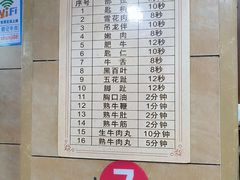 WiFi
序号
1 10秒
2 雪花肉 10秒
3 吊龙伴 10秒
4 嫩肉 8秒
5 肥牛 8秒
6 匙仁 8秒
7 牛舌 8秒
8 黑百叶 8秒
9 五花趾 12秒
10 脚趾 12秒
11 胸口油 2分钟
12 熟牛鞭 1分钟
13 熟牛肚 2分钟
14 熟牛筋 2分钟
15 生牛肉丸 10分钟
16 熟牛肉丸 5分钟
7